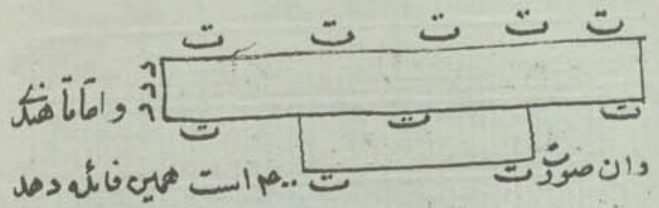 ت ت ت ت ت
و اما تا هندی
ت ت ت
وان صورت ت ت ۴۰۰ است همین فائده دهد